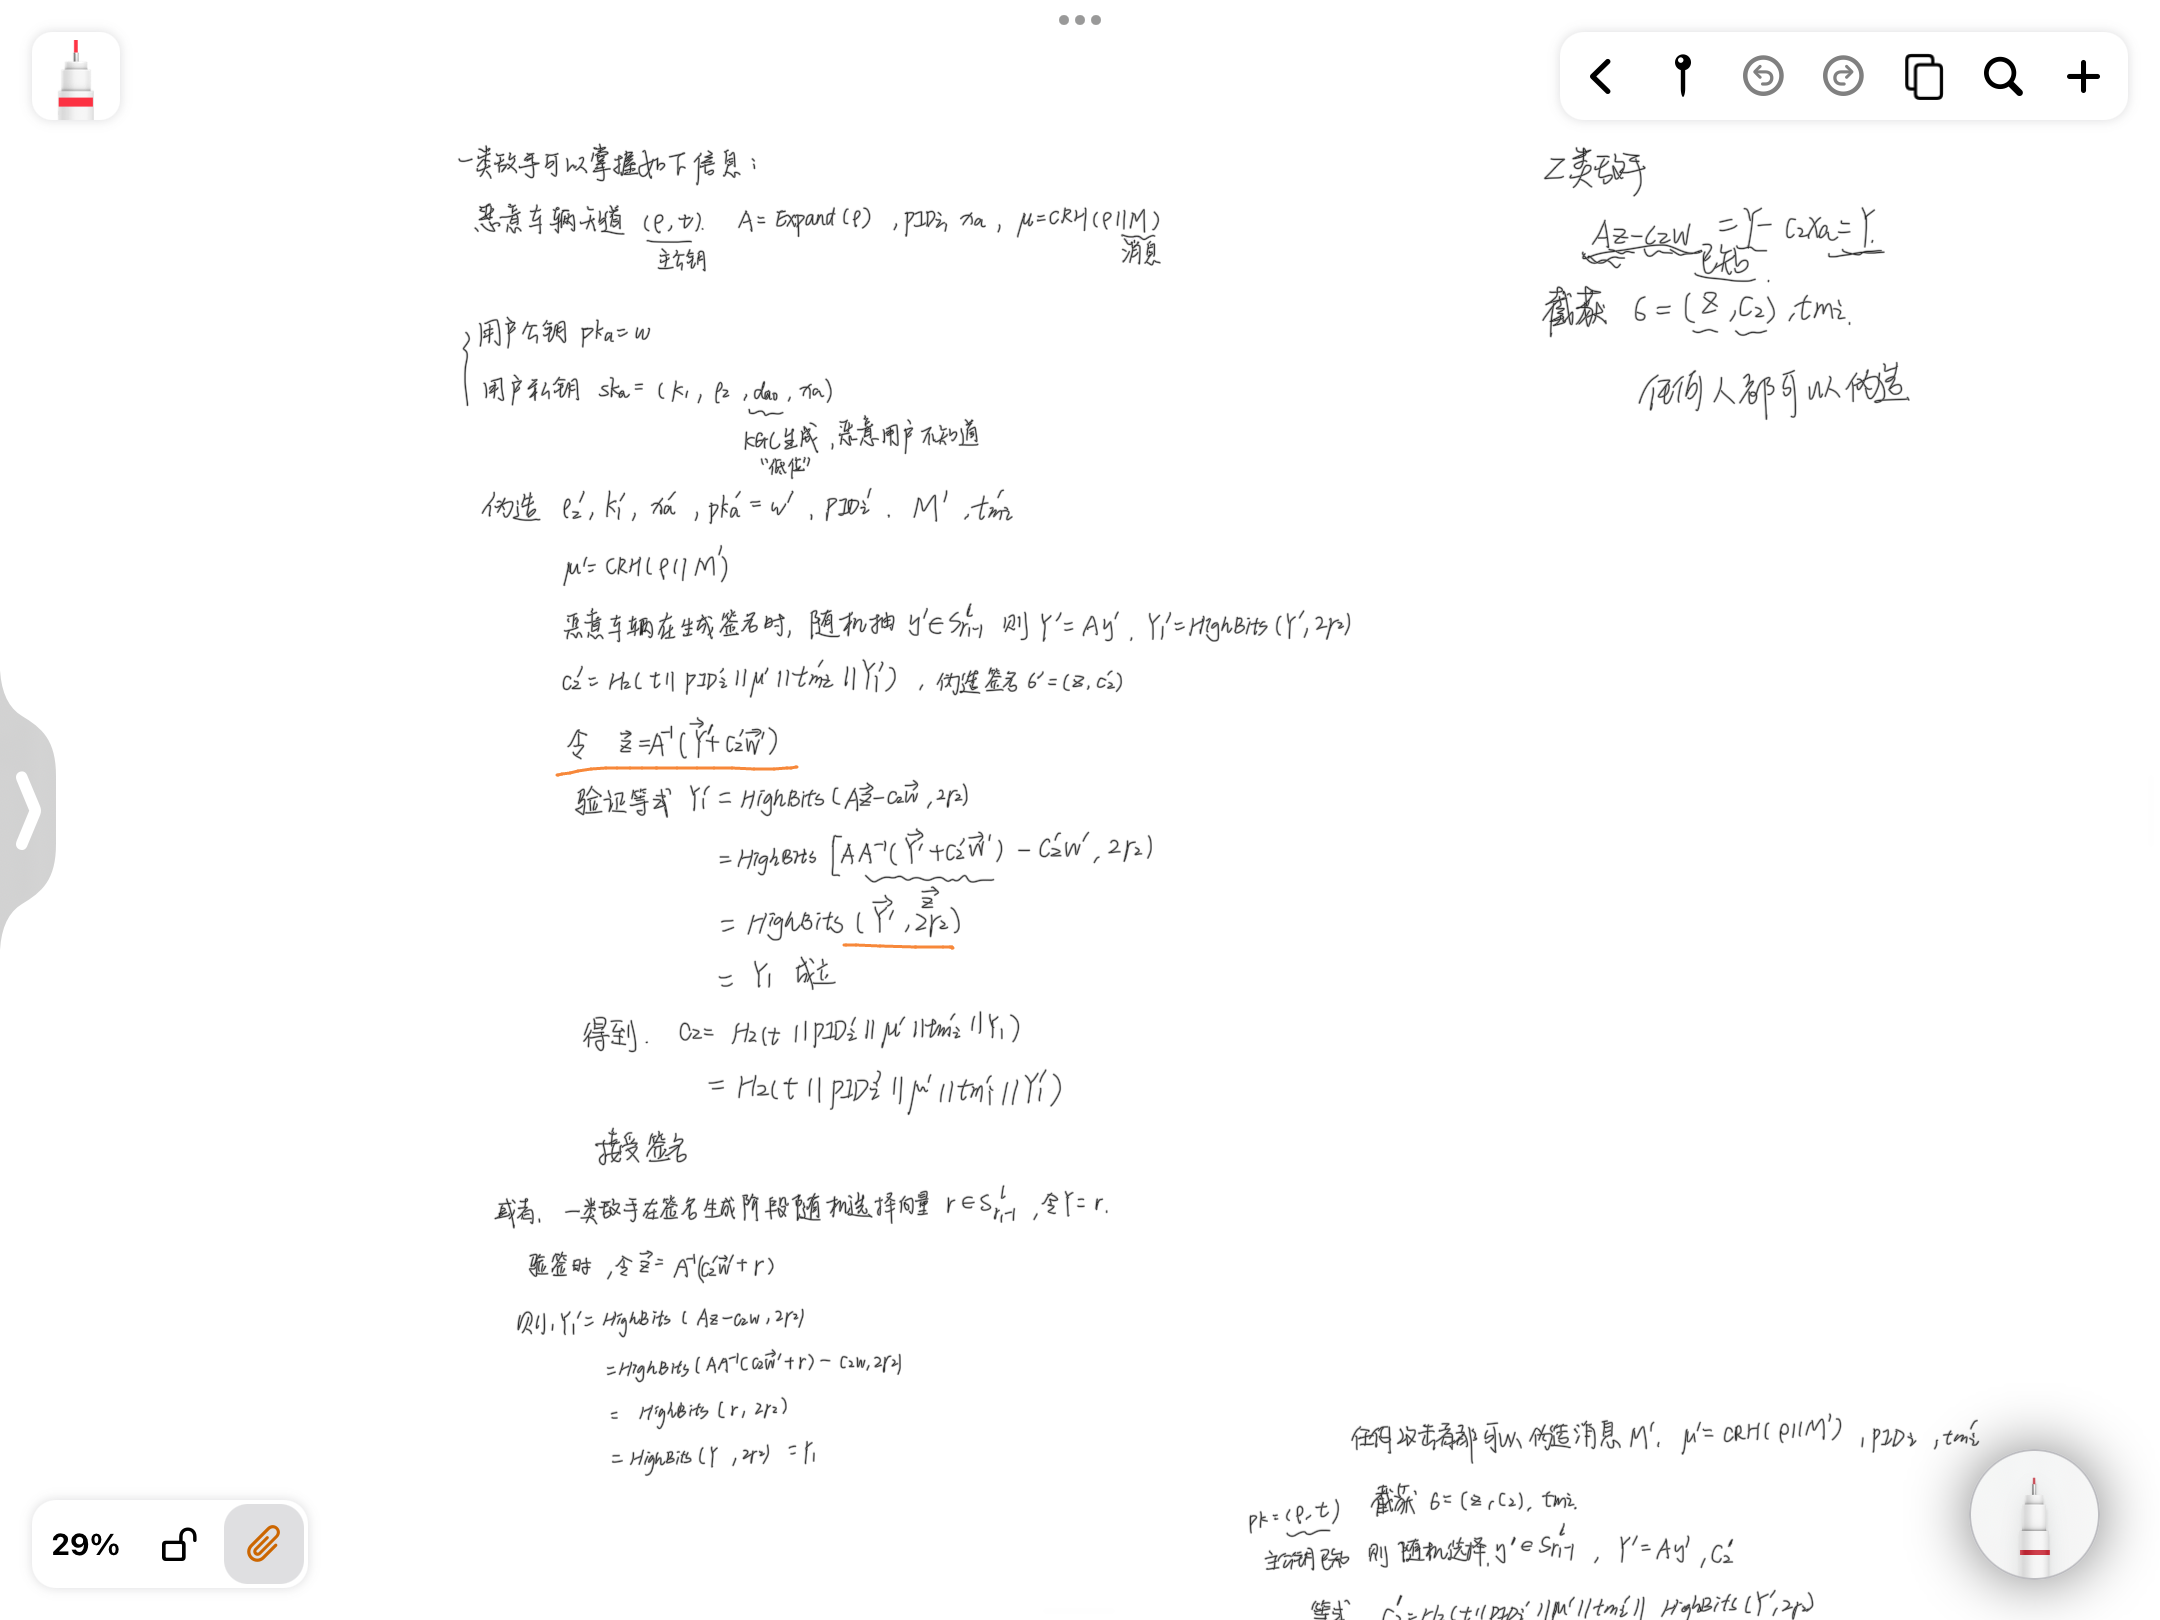 一类敌手可以掌握如下信息：
恶意车辆知道 (ρ, t). A = Expand(ρ), PIDi, xa, μ=CRH(ρ||M)
主公钥 消息
用户公钥 pka = w
用户私钥 ska = (k1, ρ2, da0, xa)
KGC生成, 恶意用户不知道
“低位”
伪造 ρ2', k1', xa', pka' = w', PIDi'. M', tmi'
μ' = CRH(ρ||M')
恶意车辆在生成签名时, 随机抽 y'∈S^l_{r1-1} 则 Y' = Ay'. Y1' = HighBits(Y', 2r2)
c2' = H2(t||PIDi'||μ'||tmi'||Y1'), 伪造签名 6' = (z, c2')
令 z⃗ = A⁻¹(Y⃗' + c2'w⃗')
验证等式 Y1' = HighBits(Az⃗ - c2w⃗, 2r2)
= HighBits[AA⁻¹(Y⃗' + c2'w⃗') - c2'w', 2r2)
z⃗
= HighBits(Y⃗', 2r2)
= Y1 成立
得到. c2 = H2(t||PIDi'||μ'||tmi'||Y1)
= H2(t||PIDi'||μ'||tmi'||Y1')
接受签名
或者, 一类敌手在签名生成阶段随机选择向量 r∈S^l_{r1-1}, 令Y = r.
验签时, 令 z⃗ = A⁻¹(c2'w⃗' + r)
则, Y1' = HighBits(Az - c2w, 2r2)
= HighBits(AA⁻¹(c2w⃗' + r) - c2w, 2r2)
= HighBits(r, 2r2)
= HighBits(Y, 2r2) = Y1
二类敌手
Az - c2w = Y - c2xa = Y.
已知
截获 6 = (z, c2), tmi.
任何人都可以伪造
任何攻击者都可以伪造消息 M'. μ' = CRH(ρ||M'), PIDi, tmi'
截获 6 = (z, c2), tmi.
pk = (ρ, t)
主公钥已知 则随机选择 y'∈S^l_{r1-1}, Y' = Ay', c2'
等式 c2' = H2(t||PIDi'||μ'||tmi'|| HighBits(Y', 2r2)
29%